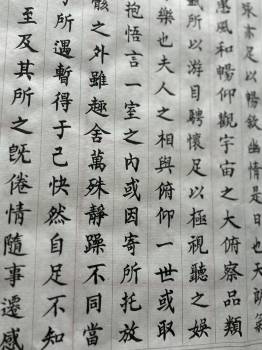 亦足以暢敘幽情是日也天朗氣
惠風和暢仰觀宇宙之大俯察品類
盛所以游目騁懷足以極視聽之娛
樂也夫人之相與俯仰一世或取
抱悟言一室之內或因寄所托放
骸之外雖趣舍萬殊靜躁不同當
于所遇暫得于己快然自足不知
至及其所之既倦情隨事遷感